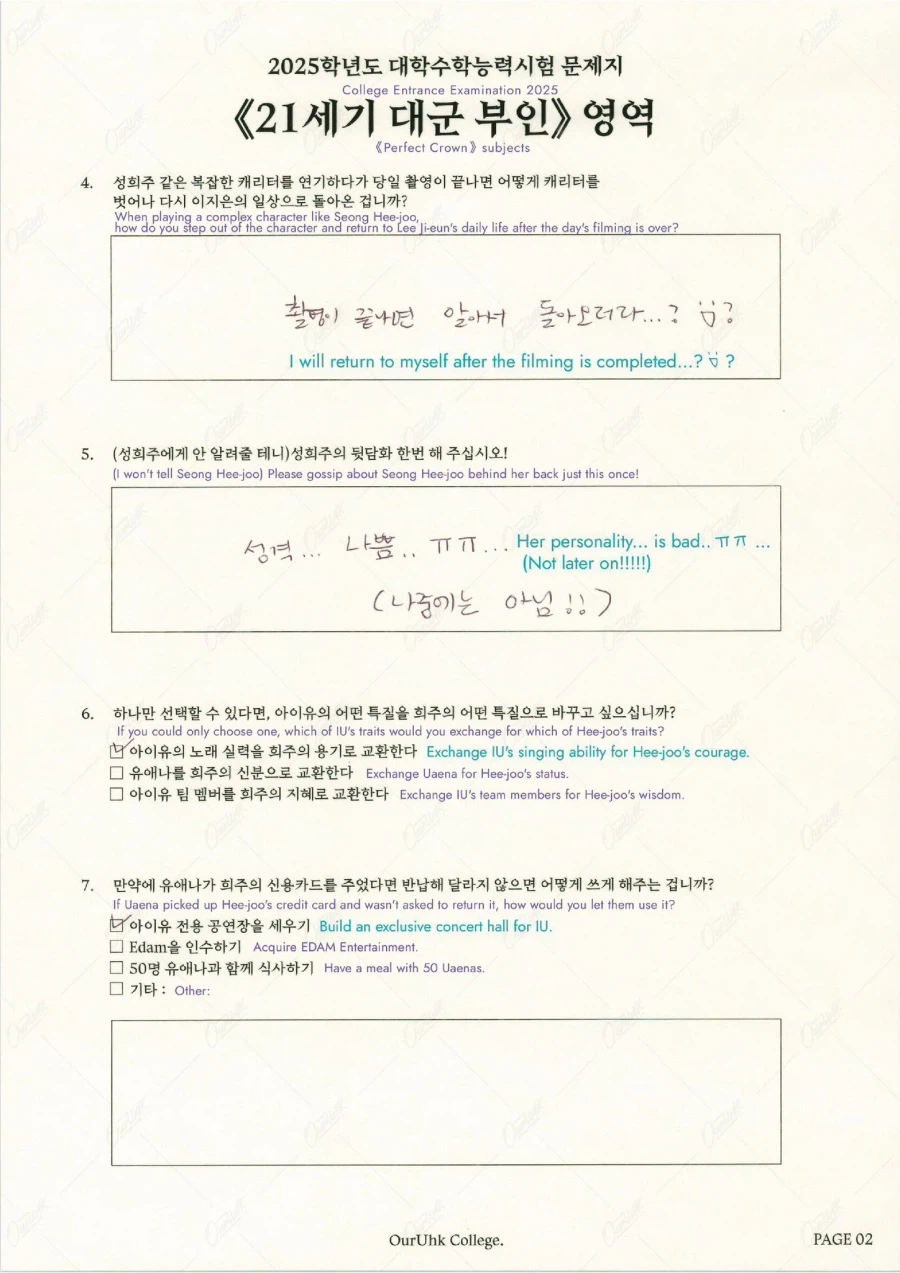 2025학년도 대학수학능력시험 문제지
College Entrance Examination 2025
《21세기 대군 부인》 영역
《Perfect Crown》 subjects
4. 성희주 같은 복잡한 캐리터를 연기하다가 당일 촬영이 끝나면 어떻게 캐리터를
벗어나 다시 이지은의 일상으로 돌아온 겁니까?
When playing a complex character like Seong Hee-joo,
how do you step out of the character and return to Lee Ji-eun's daily life after the day's filming is over?
촬영이 끝나면 알아서 돌아오더라...? ?
I will return to myself after the filming is completed...? ?
5. (성희주에게 안 알려줄 테니)성희주의 뒷담화 한번 해 주십시오!
(I won't tell Seong Hee-joo) Please gossip about Seong Hee-joo behind her back just this once!
성격... 나쁨.. ㅠㅠ... Her personality... is bad.. ㅠㅠ ...
(Not later on!!!!!)
(나중에는 아님!!)
6. 하나만 선택할 수 있다면, 아이유의 어떤 특질을 희주의 어떤 특질으로 바꾸고 싶으십니까?
If you could only choose one, which of IU's traits would you exchange for which of Hee-joo's traits?
☑ 아이유의 노래 실력을 희주의 용기로 교환한다 Exchange IU's singing ability for Hee-joo's courage.
☐ 유애나를 희주의 신분으로 교환한다 Exchange Uaena for Hee-joo's status.
☐ 아이유 팀 멤버를 희주의 지혜로 교환한다 Exchange IU's team members for Hee-joo's wisdom.
7. 만약에 유애나가 희주의 신용카드를 주었다면 반납해 달라지 않으면 어떻게 쓰게 해주는 겁니까?
If Uaena picked up Hee-joo's credit card and wasn't asked to return it, how would you let them use it?
☑ 아이유 전용 공연장을 세우기 Build an exclusive concert hall for IU.
☐ Edam을 인수하기 Acquire EDAM Entertainment.
☐ 50명 유애나과 함께 식사하기 Have a meal with 50 Uaenas.
☐ 기타 : Other:
OurUhk College.
PAGE 02